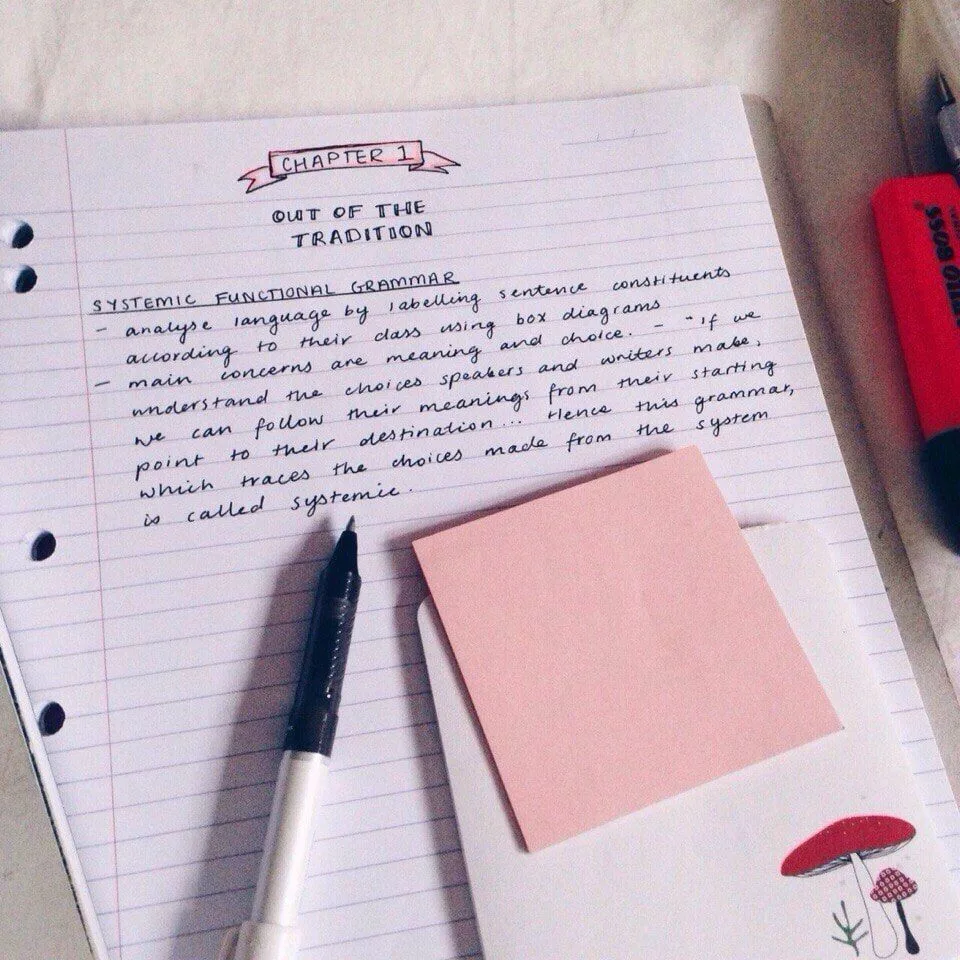 CHAPTER 1
OUT OF THE
TRADITION
SYSTEMIC FUNCTIONAL GRAMMAR
- analyse language by labelling sentence constituents
according to their class using box diagrams
- main concerns are meaning and choice. - "If we
understand the choices speakers and writers make,
we can follow their meanings from their starting
point to their destination... Hence this grammar,
which traces the choices made from the system
is called systemic.
BOSS